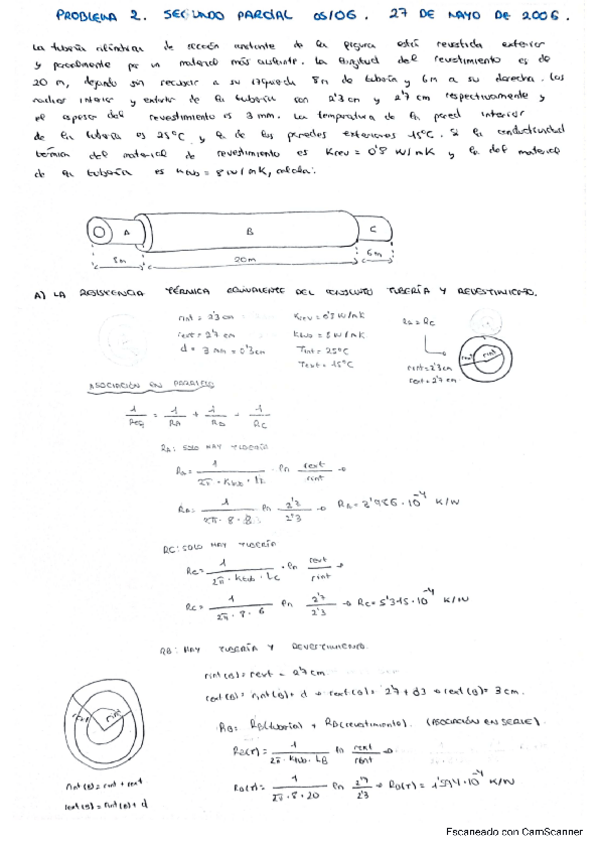 PROBLEMA 2. SEGUNDO PARCIAL 05/06. 27 DE MAYO DE 2006.
La tubería cilíndrica de sección constante de la figura está revestida exterior
y parcialmente por un material más aislante. La longitud del revestimiento es de
20 m, dejando sin recubrir a su izquierda 8m de tubería y 6m a su derecha. Los
radios interior y exterior de la tubería son 2'3 cm y 2'7 cm respectivamente y
el espesor del revestimiento es 3 mm. La temperatura de la pared interior
de la tubería es 25ºC y la de las paredes exteriores 15ºC. Si la conductividad
térmica del material de revestimiento es Krev = 0'8 W/mK y la del material
de la tubería es Ktub = 8 W/mK, calcula:
A B C
8m 20m 6m
A) LA RESISTENCIA TÉRMICA EQUIVALENTE DEL CONJUNTO TUBERÍA Y REVESTIMIENTO.
rint = 2'3 cm Krev = 0'8 W/mK RA = RC
rext = 2'7 cm Ktub = 8 W/mK
d = 3 mm = 0'3 cm Tint = 25ºC
Text = 15ºC
rext rint
rint = 2'3 cm
rext = 2'7 cm
ASOCIACIÓN EN PARALELO
1/Req = 1/RA + 1/RB + 1/RC
RA: SOLO HAY TUBERÍA
RA = 1/2π · Ktub · LA · ln rext/rint →
RA = 1/2π · 8 · 8 ln 2'7/2'3 → RA = 3'986 · 10⁻⁴ K/W
RC: SOLO HAY TUBERÍA
RC = 1/2π · Ktub · LC · ln rext/rint →
RC = 1/2π · 8 · 6 ln 2'7/2'3 → RC = 5'315 · 10⁻⁴ K/W
RB: HAY TUBERÍA Y REVESTIMIENTO
rint (B) = rext = 2'7 cm.
rext (B) = rint (B) + d → rext (B) = 2'7 + 0'3 → rext (B) = 3 cm.
RB = RB (tubería) + RB (revestimiento). (ASOCIACIÓN EN SERIE).
RB(T) = 1/2π · Ktub · LB ln rext/rint →
RB(T) = 1/2π · 8 · 20 ln 2'7/2'3 → RB(T) = 1'594 · 10⁻⁴ K/W
rint (B) = rint + rext
rext (B) = rint (B) + d
Escaneado con CamScanner